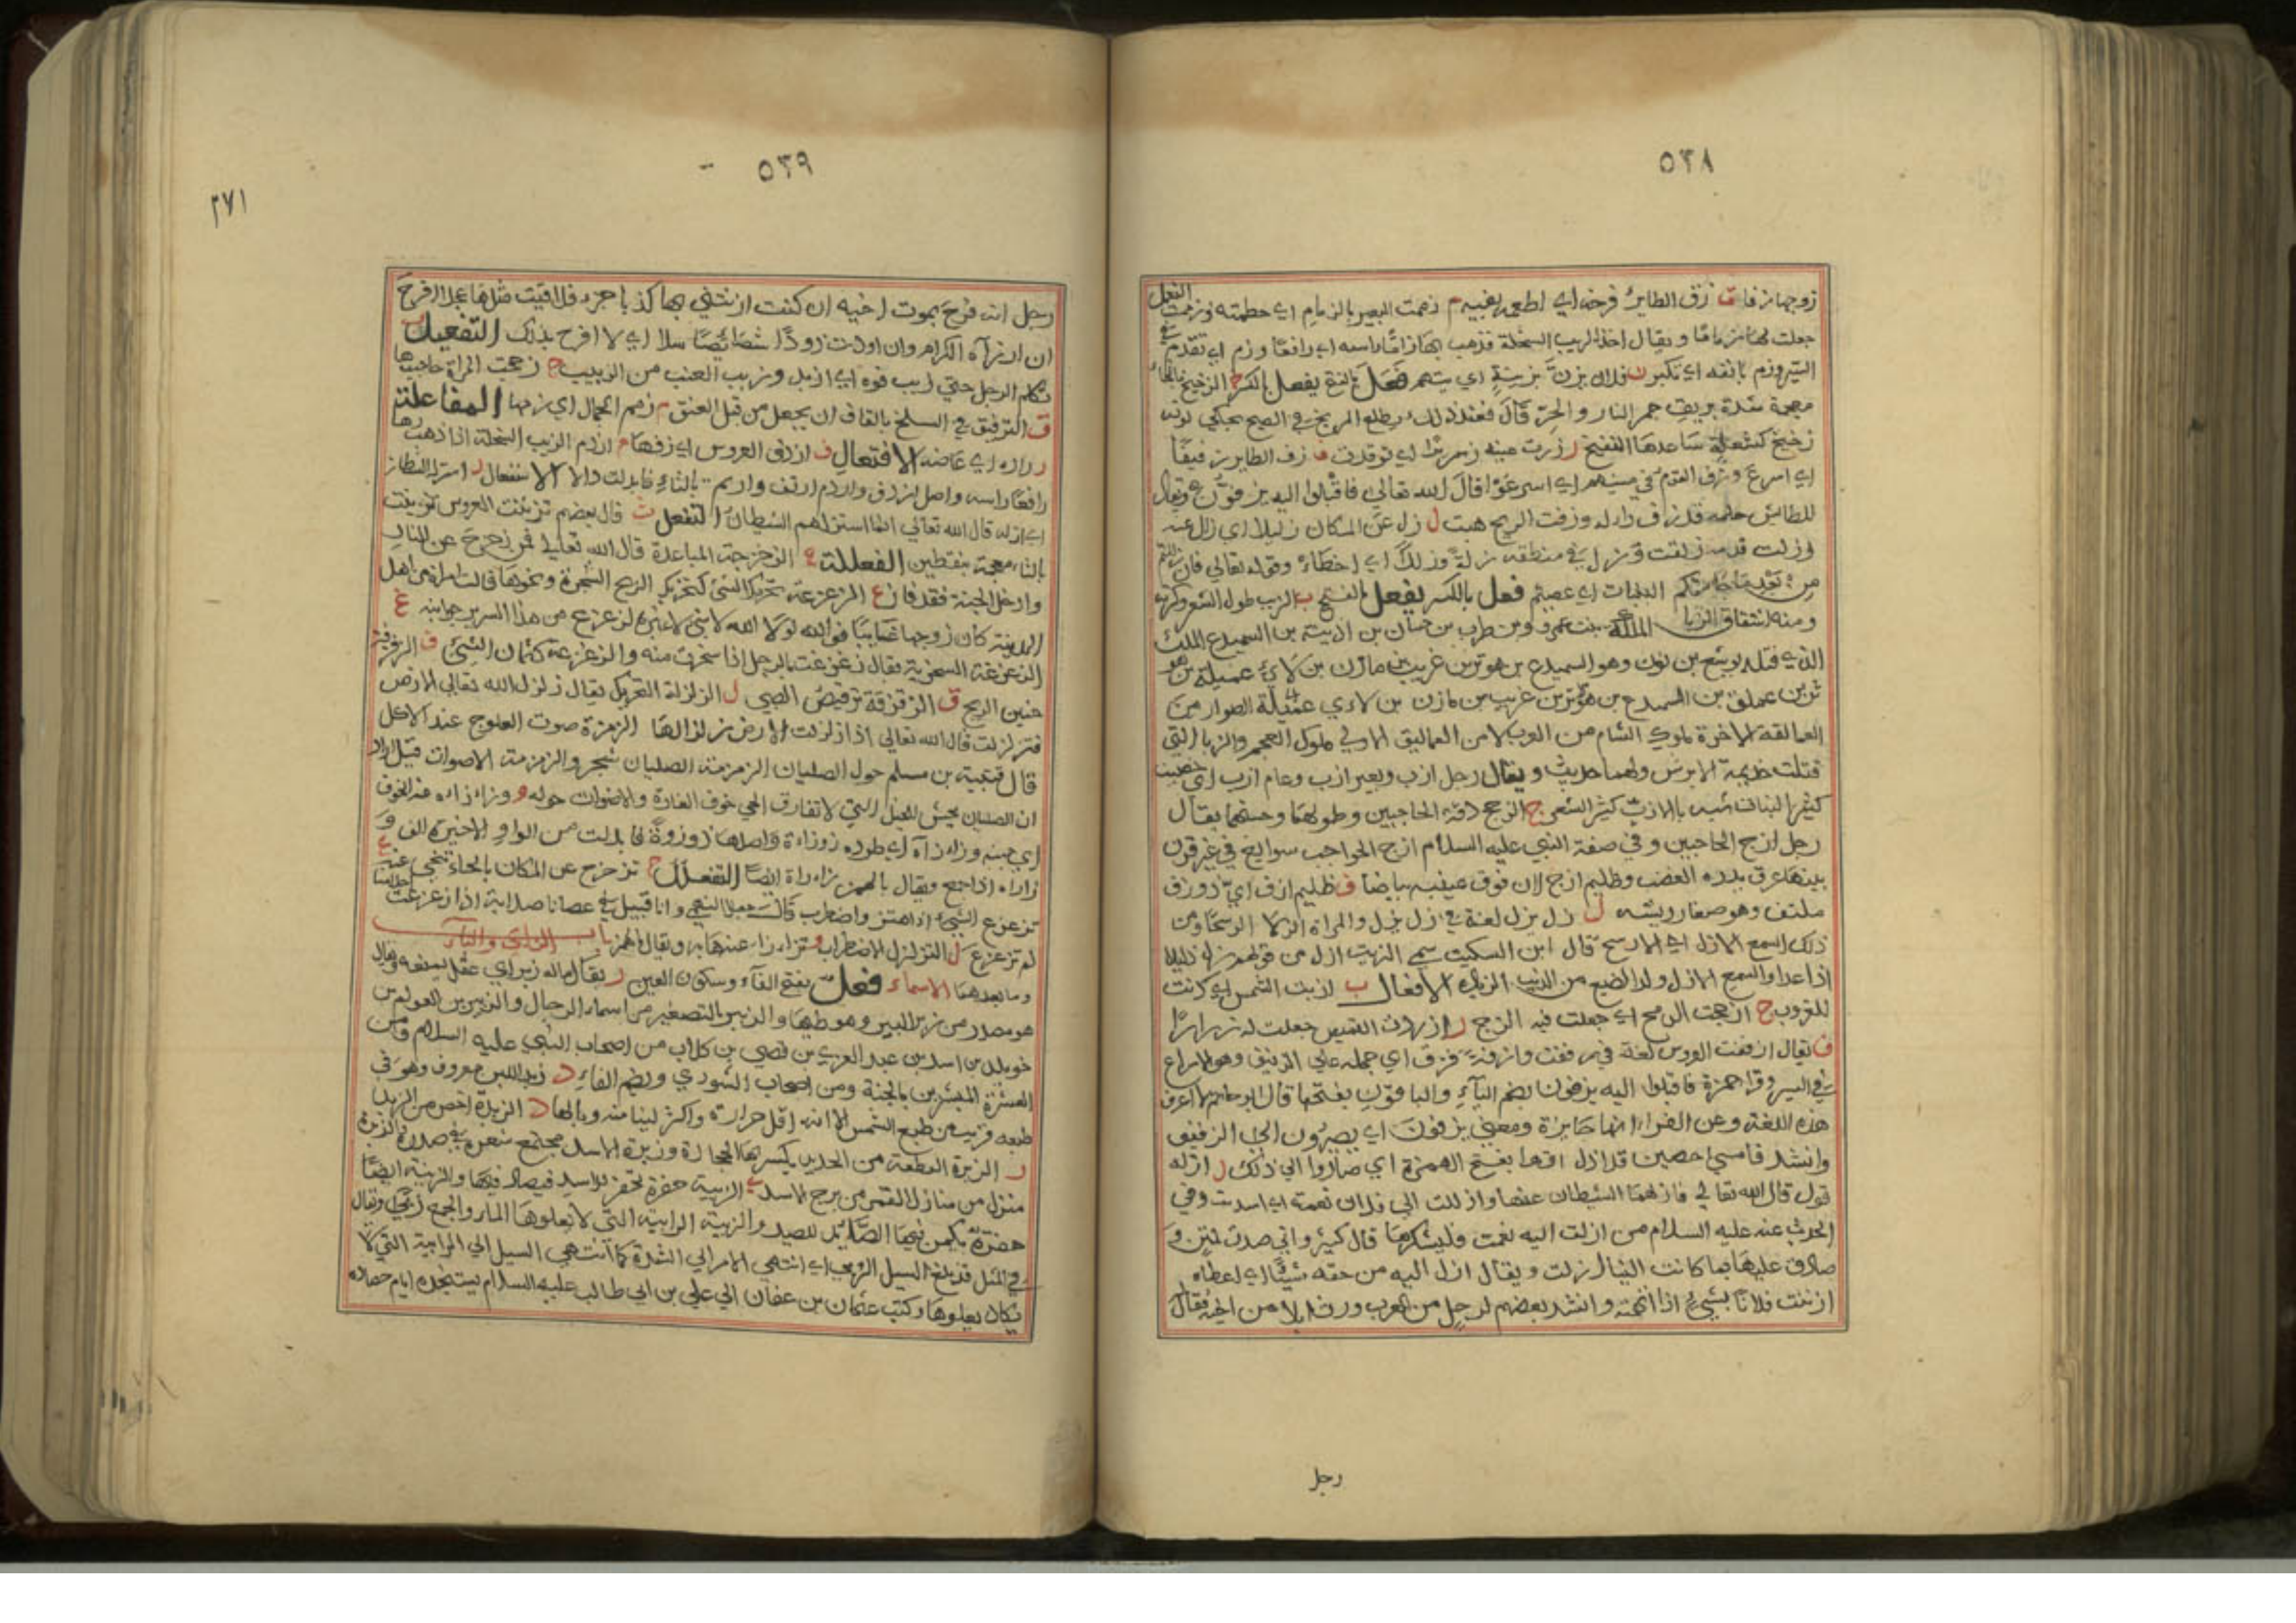 ٥٣٨
زوجها زفافا ق زق الطاير فرخه اي اطعمه بفيه م زممت البعير بالزمام اي خطمته وزممت النعل
جعلت لها زماما ويقال اخذ الذيب السخلة فذهب بها زاما راسه اي رافعا وزم اي تقدم في
السير وزم بانفه اي تكبر ن فلان يزن بزينة اي يتهم فعل بالفتح يفعل بالكسر خ الزخيخ بالخاء
معجمة شدة بريق جمر النار والحر قال فعند ذلك يطلع المريخ في الصبح يحكي لونه
زخيخ كشعلة ساعدها النفيخ ر زرت عينه زريرا اي توقدت ف زف الطاير زفيفا
اي اسرع وزف القوم في مشيهم اي اسرعوا قال الله تعالى فاقبلوا اليه يزفون ويقال
للطايش حلمه قد زف راله وزفت الريح هبت ل زل عن المكان زليلا اي زال عنه
وزلت قدمه زلقت وزل في منطقه زلة وزللا اي اخطاء وقوله تعالى فان زللتم
من بعد ما جاءتكم البينات اي عصيتم فعل بالكسر يفعل بالفتح ب الزبب طول الشعر وكثرته
ومنه اشتقاق الزبا الملكة بنت عمرو بن طرب بن حسان بن اذينة بن السميدع الملك
الذي قتله يوشع بن نون وهو السميدع بن هوثر بن غريب بن مازن بن لاي بن عميلة بن هو
ثر بن عملاق بن السميدع بن هوثر بن غريب بن مازن بن لاي عميلة الصوار من
العمالقة الاخرة ملوك الشام من العرب لا من العماليق الاولى ملوك العجم والزبا التي
قتلت جذيمة الابرش ولهما حديث ويقال رجل ازب وبعير ازب وعام ازب اي خصيب
كثير النبات شبه بالازب كثير الشعر ج الزجج دقة الحاجبين وطولهما وحسنهما يقال
رجل ازج الحاجبين وفي صفة النبي عليه السلام ازج الحواجب سوابغ في غير قرن
بينهما عرق يدره الغضب وظليم ازج لان فوق عينيه بياضا ف ظليم ازف اي ذو زف
ملتف وهو صغار ريشه ل زل يزل لغة في زل يزل والمراة الزلا الرسحاء ومن
ذلك السمع الازل اي الارسح قال ابن السكيت سمي الذيب ازل من قولهم زل زليلا
اذا عدا والسمع الازل ولد الضبع من الذيب الزيادة الافعال ب ازبت الشمس اي دنت
للغروب ج ازججت الرمح اي جعلت فيه الزج ر ازررت القميص جعلت له ازرارا
ف يقال ازففت العروس لغة في زففت وازفه فزف اي حمله على الزفيف وهو الاسراع
في السير وقرا حمزة فاقبلوا اليه يزفون بضم الياء والباقون بفتحها قال ابو حاتم لا اعرف
هذه اللغة وعن الفراء انها جايزة ومعنى يزفون اي يصيرون الى الزفيف
وانشد فامسى حصين قد اذل اقهرا بفتح الهمزة اي صاروا الى ذلك ل ازله
قول قال الله تعالى فازلهما الشيطان عنها وازللت الى فلان نعمة اي اسديت وفي
الحديث عنه عليه السلام من ازلت اليه نعمت فليشكرها قال كثير واني صدت لمثن و
صادق عليها بما كانت الينا ازلت ويقال ازل اليه من حقه شيئا اي اعطاه
ازننت فلانا بشيء اذا اتهمته وانشد بعضهم لرجل من العرب ورث ابلا من اخيه فقال
رجل
٥٣٩
٢٧١
رجل انه فرح بموت اخيه ان كنت ازننتني بها كذبا جزء فلاقيت مثلها عجلا افرح
ان ارزآ الكرام وان اورث ذودا شصائصا نبلا اي لا افرح بذلك التفعيل ب
تكلم الرجل حتى زبب فوه اي ازبد وزبب العنب من الزبيب ج زججت المراة حاجبها
ق التزقيق في السلخ بالقاف ان يجعل من قبل العنق م زمم الجمال اي زمها المفاعلة
ر زاره اي عاضه الافتعال ف ازدف العروس اي زفها م ازدم الذيب السخلة اذا ذهب بها
رافعا راسه واصل ازدف وازدم ازتف وازتم بالتاء فابدلت دالا الاستفعال ل استزله الشيطان
اي ازله قال الله تعالى انما استزلهم الشيطان التفعل ت قال بعضهم تزتتت العروس تزينت
بالتاء معجمة بنقطتين الفعللة ح الزحزحة المباعدة قال الله تعالى فمن زحزح عن النار
وادخل الجنة فقد فاز ع الزعزعة تحريك الشيء كتحريك الريح الشجرة ونحوها قالت امراة من اهل
المدينة كان زوجها غايبا فوالله لولا الله لا شيء غيره لزعزع من هذا السرير جوانبه غ
الزغزغة السخرية يقال زغزغت بالرجل اذا سخرت منه والزغزغة كتمان الشيء ف الزفزفة
حنين الريح ق الزقزقة ترقيص الصبي ل الزلزلة التحريك يقال زلزل الله تعالى الارض
فتزلزلت قال الله تعالى اذا زلزلت الارض زلزالها الزمزمة صوت العلوج عند الاكل
قال قتيبة بن مسلم حول الصليان الزمزمة الصليان شجر والزمزمة الاصوات قيل اراد
ان الصليان يحش للخيل التي لا تفارق الحي خوف الغارة والاصوات حوله و وزاءزاءه عند الخوف
اي جبنه وزاءزآه اي طرده زوزاءة واصلها زوزوة فابدلت من الواو الاخيرة الف و
زازاه اذا جمع ويقال بالهمز زاءزاة ايضا التفعلل ح تزحزح عن المكان بالحاء تنحى عنه ع
تزعزع الشيء اذا اهتز واضطرب قال جميل النبهي وانا قبيل في عصانا صلابة اذا زعزعت احداثنا
لم تزعزع ل التزلزل الاضطراب و تزاءزاء عنها به ويقال الهمز باب الزاي والباء
وما بعدهما الاسماء فعل بفتح الفاء وسكون العين ر يقال ماله زبر اي عقل يمنعه ويقال
هو مصدر من زبر البير وهو طيها والزبير بالتصغير من اسماء الرجال والزبير بن العوام بن
خويلد بن اسد بن عبد العزى بن قصي بن كلاب من اصحاب النبي عليه السلام ومن
العشرة المبشرين بالجنة ومن اصحاب الشورى وبضم الفاء د زبد اللبن معروف وهو في
طبعه قريب من طبع الشمس الا انه اقل حرارة واكثر لينا منه وبالهاء د الزبدة اخص من الزبد
ر الزبرة القطعة من الحديد يكسر بها الحجارة وزبرة الاسد مجتمع شعره في صدره والزبرة
منزل من منازل القمر من برج الاسد ي الزبية حفرة تحفر للاسد فيصاد فيها والزبية ايضا
حفرة يكمن فيها الصايد للصيد والزبية الرابية التي لا يعلوها الماء والجمع زبى ويقال
في المثل قد بلغ السيل الزبى اي انتهى الامر الى الشدة كما انتهى السيل الى الرابية التي لا
يكاد يعلوها وكتب عثمان بن عفان الى علي بن ابي طالب عليه السلام يستنجده ايام حصاره